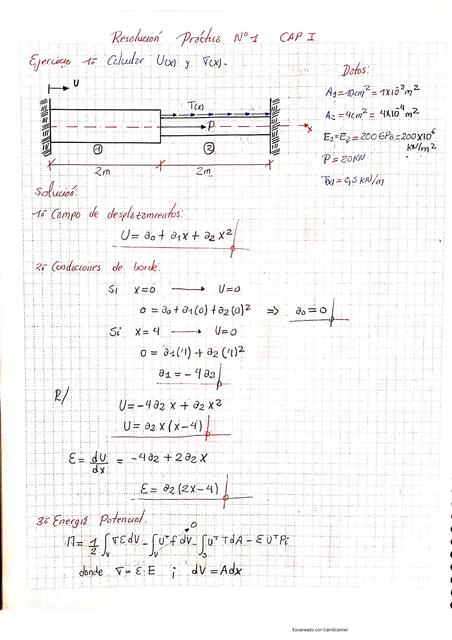 Resolución Práctica N°1 CAP I
Ejercicio 1º Calcular U(x) y σ(x).
Datos:
A1 = 10cm² = 1x10⁻³m²
A2 = 4cm² = 4x10⁻⁴m²
E1 = E2 = 200GPa = 200x10⁶
KN/m²
P = 20KN
T(x) = 0,5 KN/m
U
T(x)
P
x
1
2
2m
2m
Solución:
1º Campo de desplazamientos:
U = a0 + a1x + a2x²
2º Condiciones de borde.
Si x=0 → U=0
0 = a0 + a1(0) + a2(0)² => a0 = 0
Si x=4 → U=0
0 = a1(4) + a2(4)²
a1 = -4a2
R/
U = -4a2x + a2x²
U = a2x(x-4)
ε = dU/dx = -4a2 + 2a2x
ε = a2(2x-4)
3º Energía Potencial.
Π = 1/2 ∫v σεdV - ∫v Uᵀf dV - ∫s UᵀTdA - ΣUᵀPi
0
donde σ = ε·E ; dV = Adx
Escaneado con CamScanner